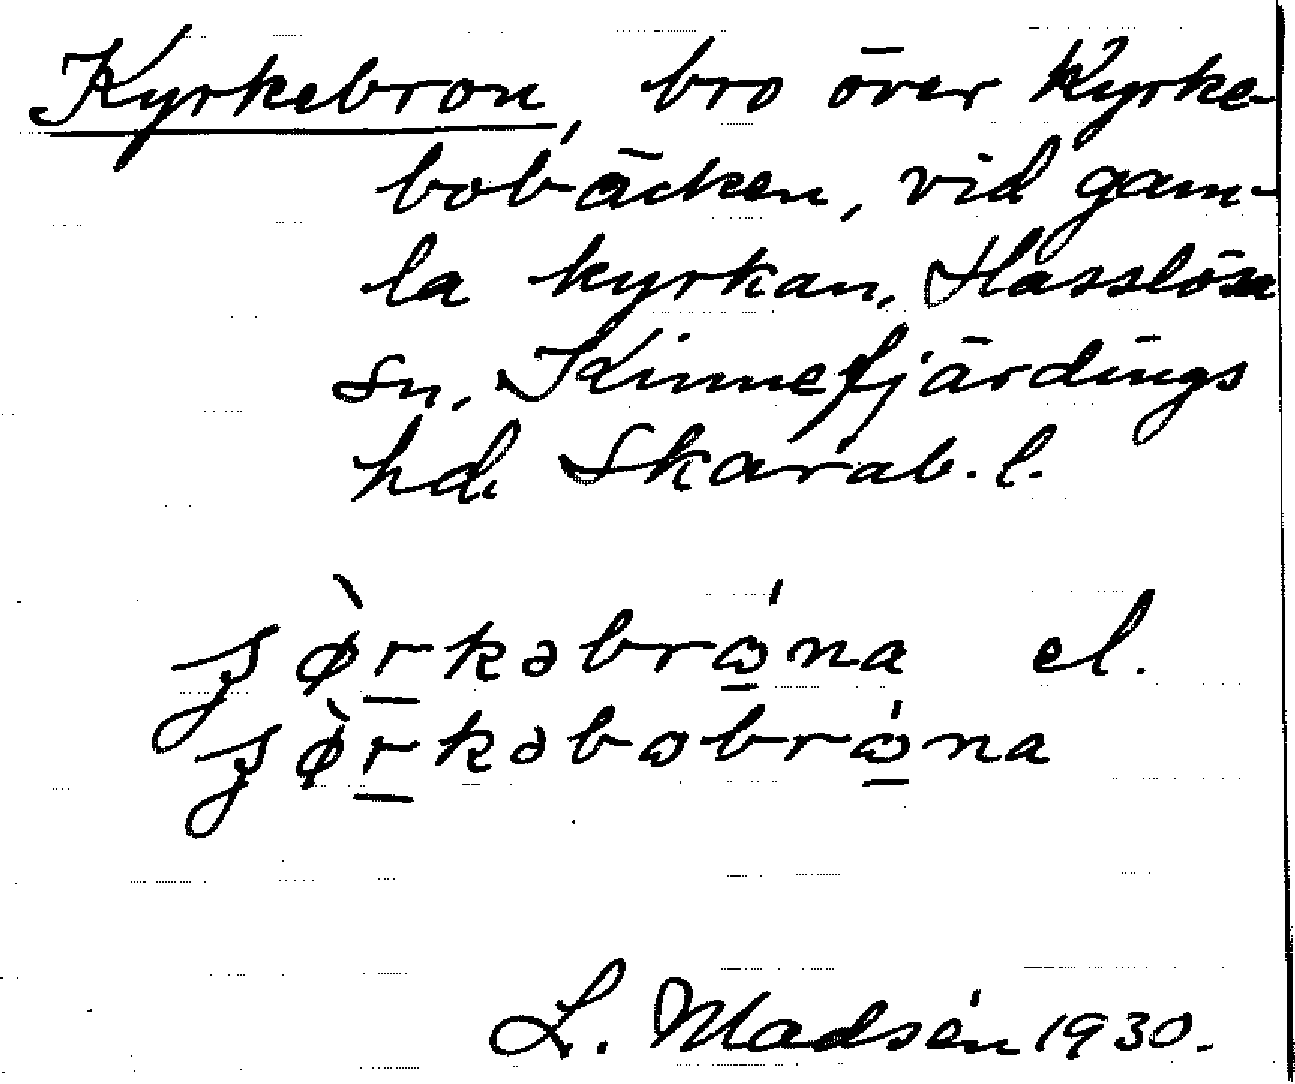 Kyrkebron, bro över Kyrke-
bobäcken, vid gam-
la kyrkan. Hasslösa
sn. Kinnefjärdings
hd. Skarab. l.
ʂø̀rkəbrɷ́na el.
ʂø̀rkəbɷbrɷ́na
L. Madsén 1930.